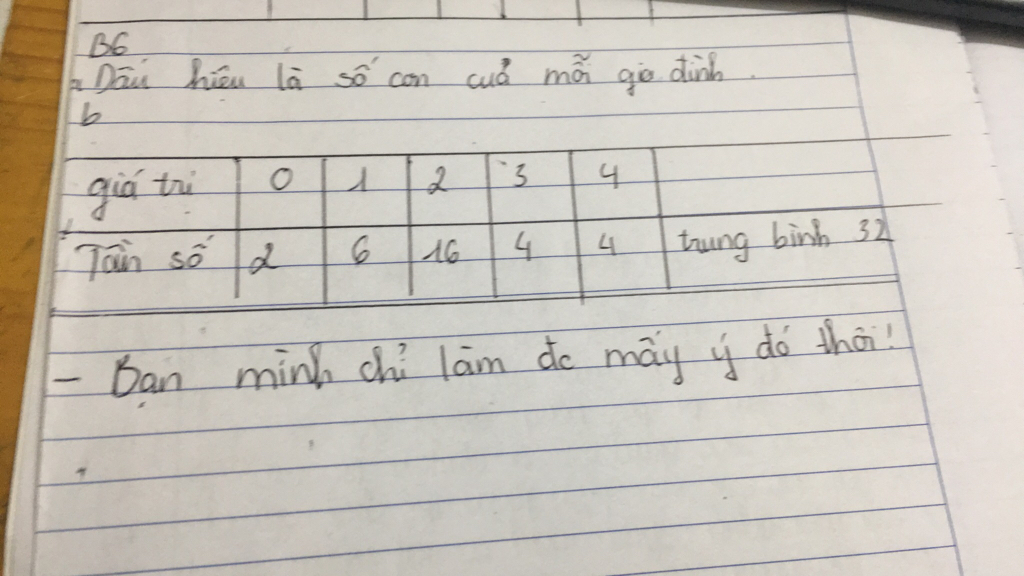 B6
a Dấu hiệu là số con củả mỗi gia đình.
b
giá trị 0 1 2 3 4
Tần số 2 6 16 4 4 trung bình 32
- Bạn mình chỉ làm đc mấy ý đó thôi!